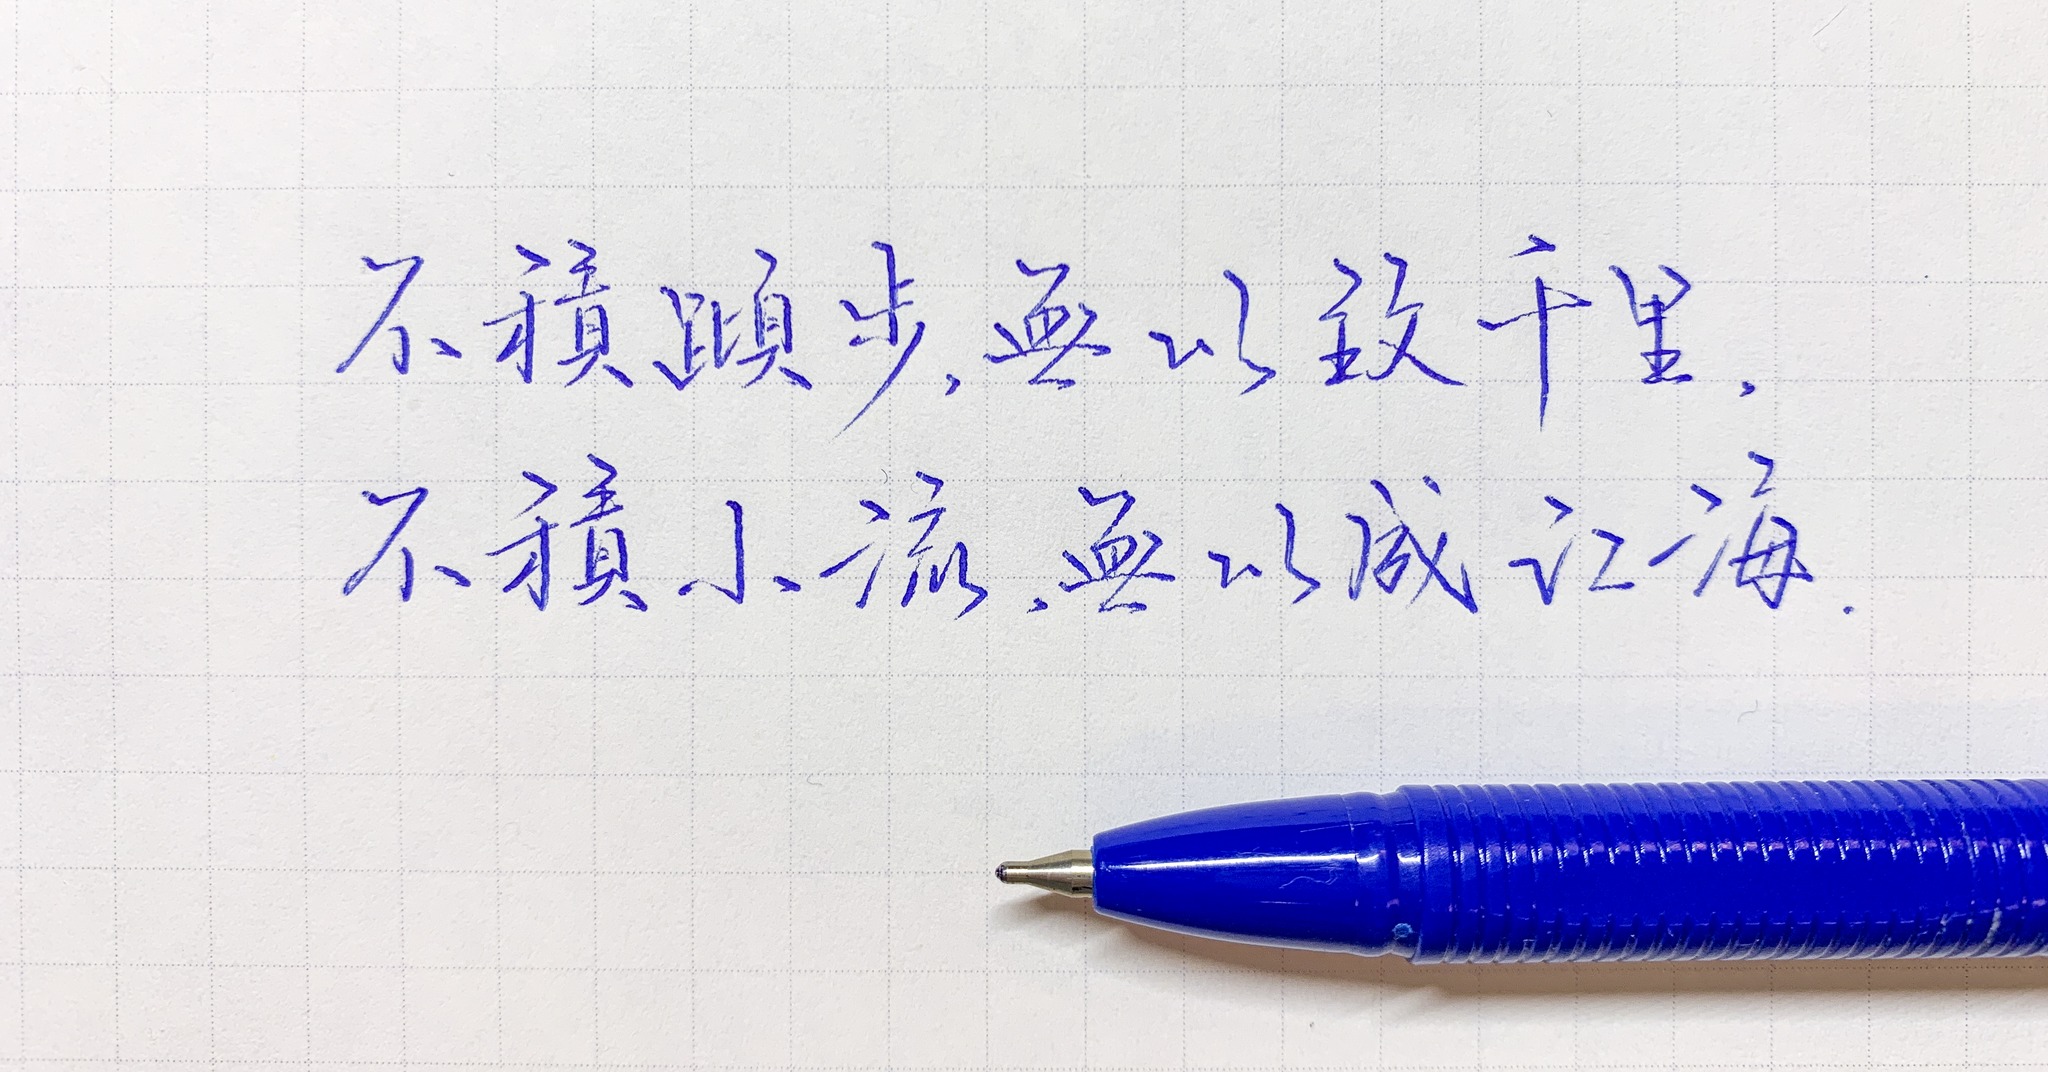 不積蹞步,無以致千里,
不積小流,無以成江海.